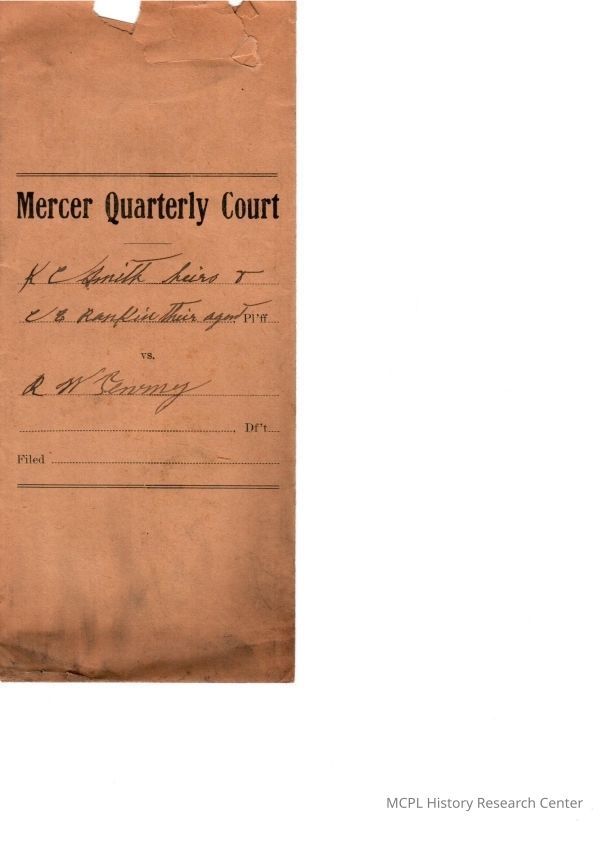 Mercer Quarterly Court
K C Smith heirs &
C E Rankin their agent Pl'ff
vs.
R W
Df't
Filed
MCPL History Research Center